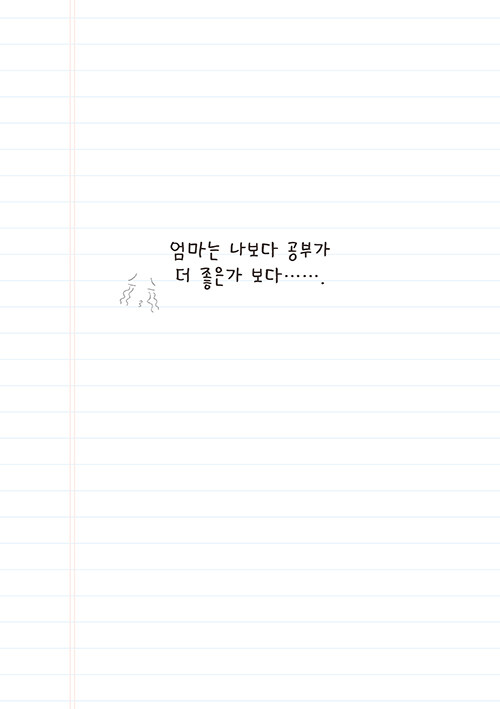 엄마는 나보다 공부가
더 좋은가 보다…….